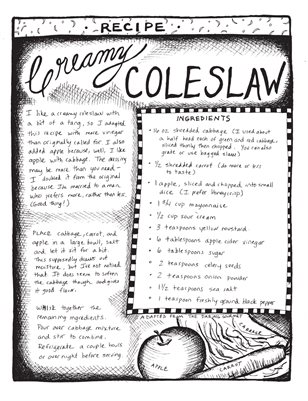 RECIPE
Creamy
COLESLAW
I like a creamy coleslaw with
a bit of a tang, so I adapted
this recipe with more vinegar
than originally called for. I also
added apple because, well, I like
apple with cabbage. The dressing
may be more than you need -
I doubled it from the original
because I'm married to a man
who prefers more, rather than less.
(Good thing!)
PLACE cabbage, carrot, and
apple in a large bowl, salt
and let it sit for a bit.
This supposedly draws out
moisture, but I've not noticed
that. It does seem to soften
the cabbage though, and gives
it good flavor.
WHISK together the
remaining ingredients.
Pour over cabbage mixture
and stir to combine.
Refrigerate a couple hours
or overnight before serving.
INGREDIENTS
16 oz shredded cabbage (I used about
a half head each of green and red cabbage,
sliced thinly then chopped. You can also
grate or use bagged slaw)
½ shredded carrot (do more or less
to taste)
1 apple, sliced and chopped into small
dice (I prefer honeycrisp)
1 ¾ cup mayonnaise
½ cup sour cream
3 teaspoons yellow mustard
6 tablespoons apple cider vinegar
6 tablespoons sugar
2 teaspoons celery seeds
2 teaspoons onion powder
1 ½ teaspoons sea salt
1 teaspoon freshly ground black pepper
ADAPTED FROM THE DARING GOURMET
APPLE
CARROT
CABBAGE